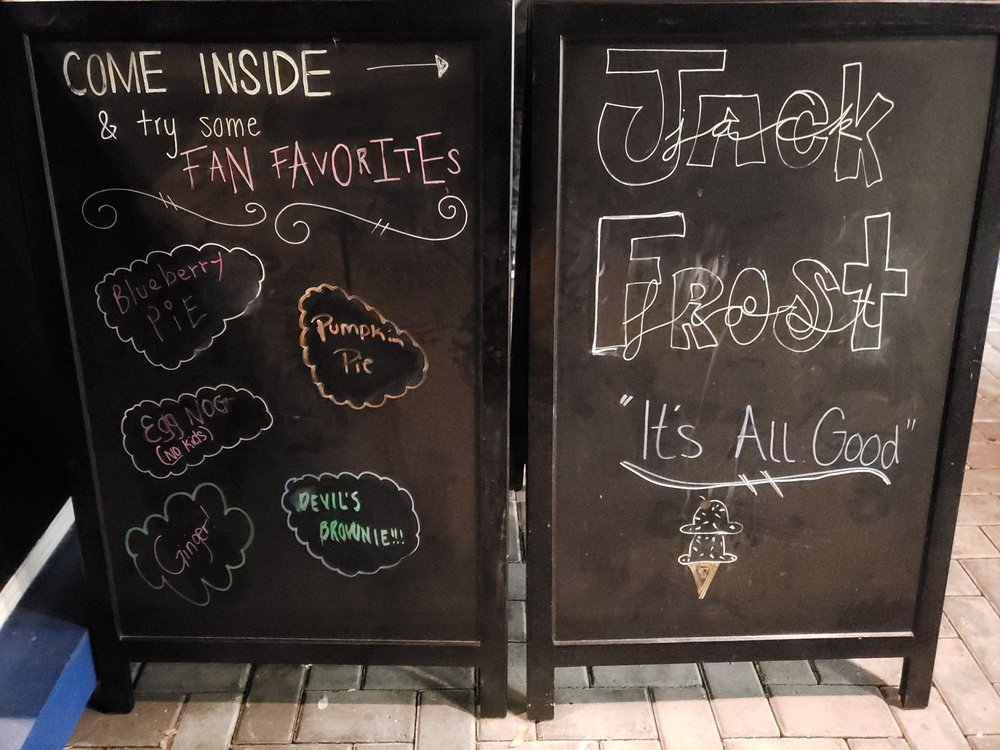 COME INSIDE
& try some
FAN FAVORITES
Blueberry
PiE
Pumpkin
Pie
Egg NOG
(NO Kids)
Ginger!
DEVIL'S
BROWNIE!!!
Jack
jack
Frost
frost
"It's All Good"